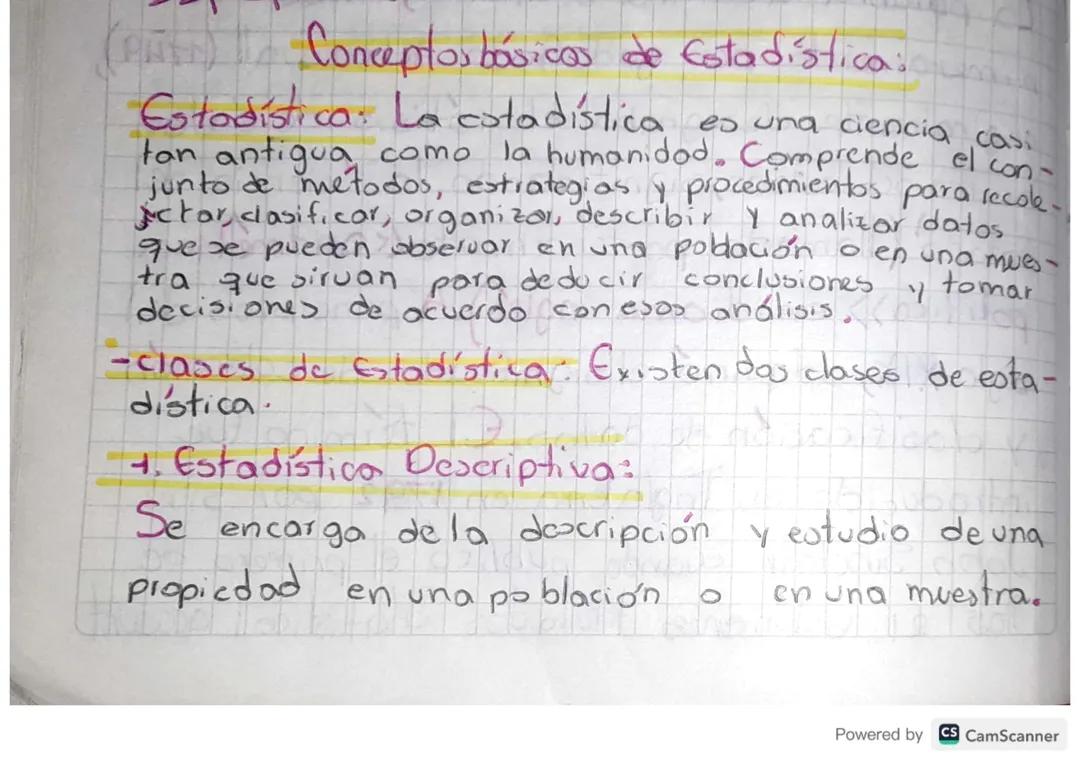 Conceptos básicos de Estadística:
Estadística: La estadística es una ciencia casi
tan antigua como la humanidad. Comprende el con-
junto de métodos, estrategias y procedimientos para recole-
ctar, clasificar, organizar, describir y analizar datos
que se pueden observar en una población o en una mues-
tra que sirvan para deducir conclusiones y tomar
decisiones de acuerdo con esos análisis.
-Clases de Estadística: Existen dos clases de esta-
dística.
1. Estadística Descriptiva:
Se encarga de la descripción y estudio de una
propiedad en una población o en una muestra.
Powered by CS CamScanner